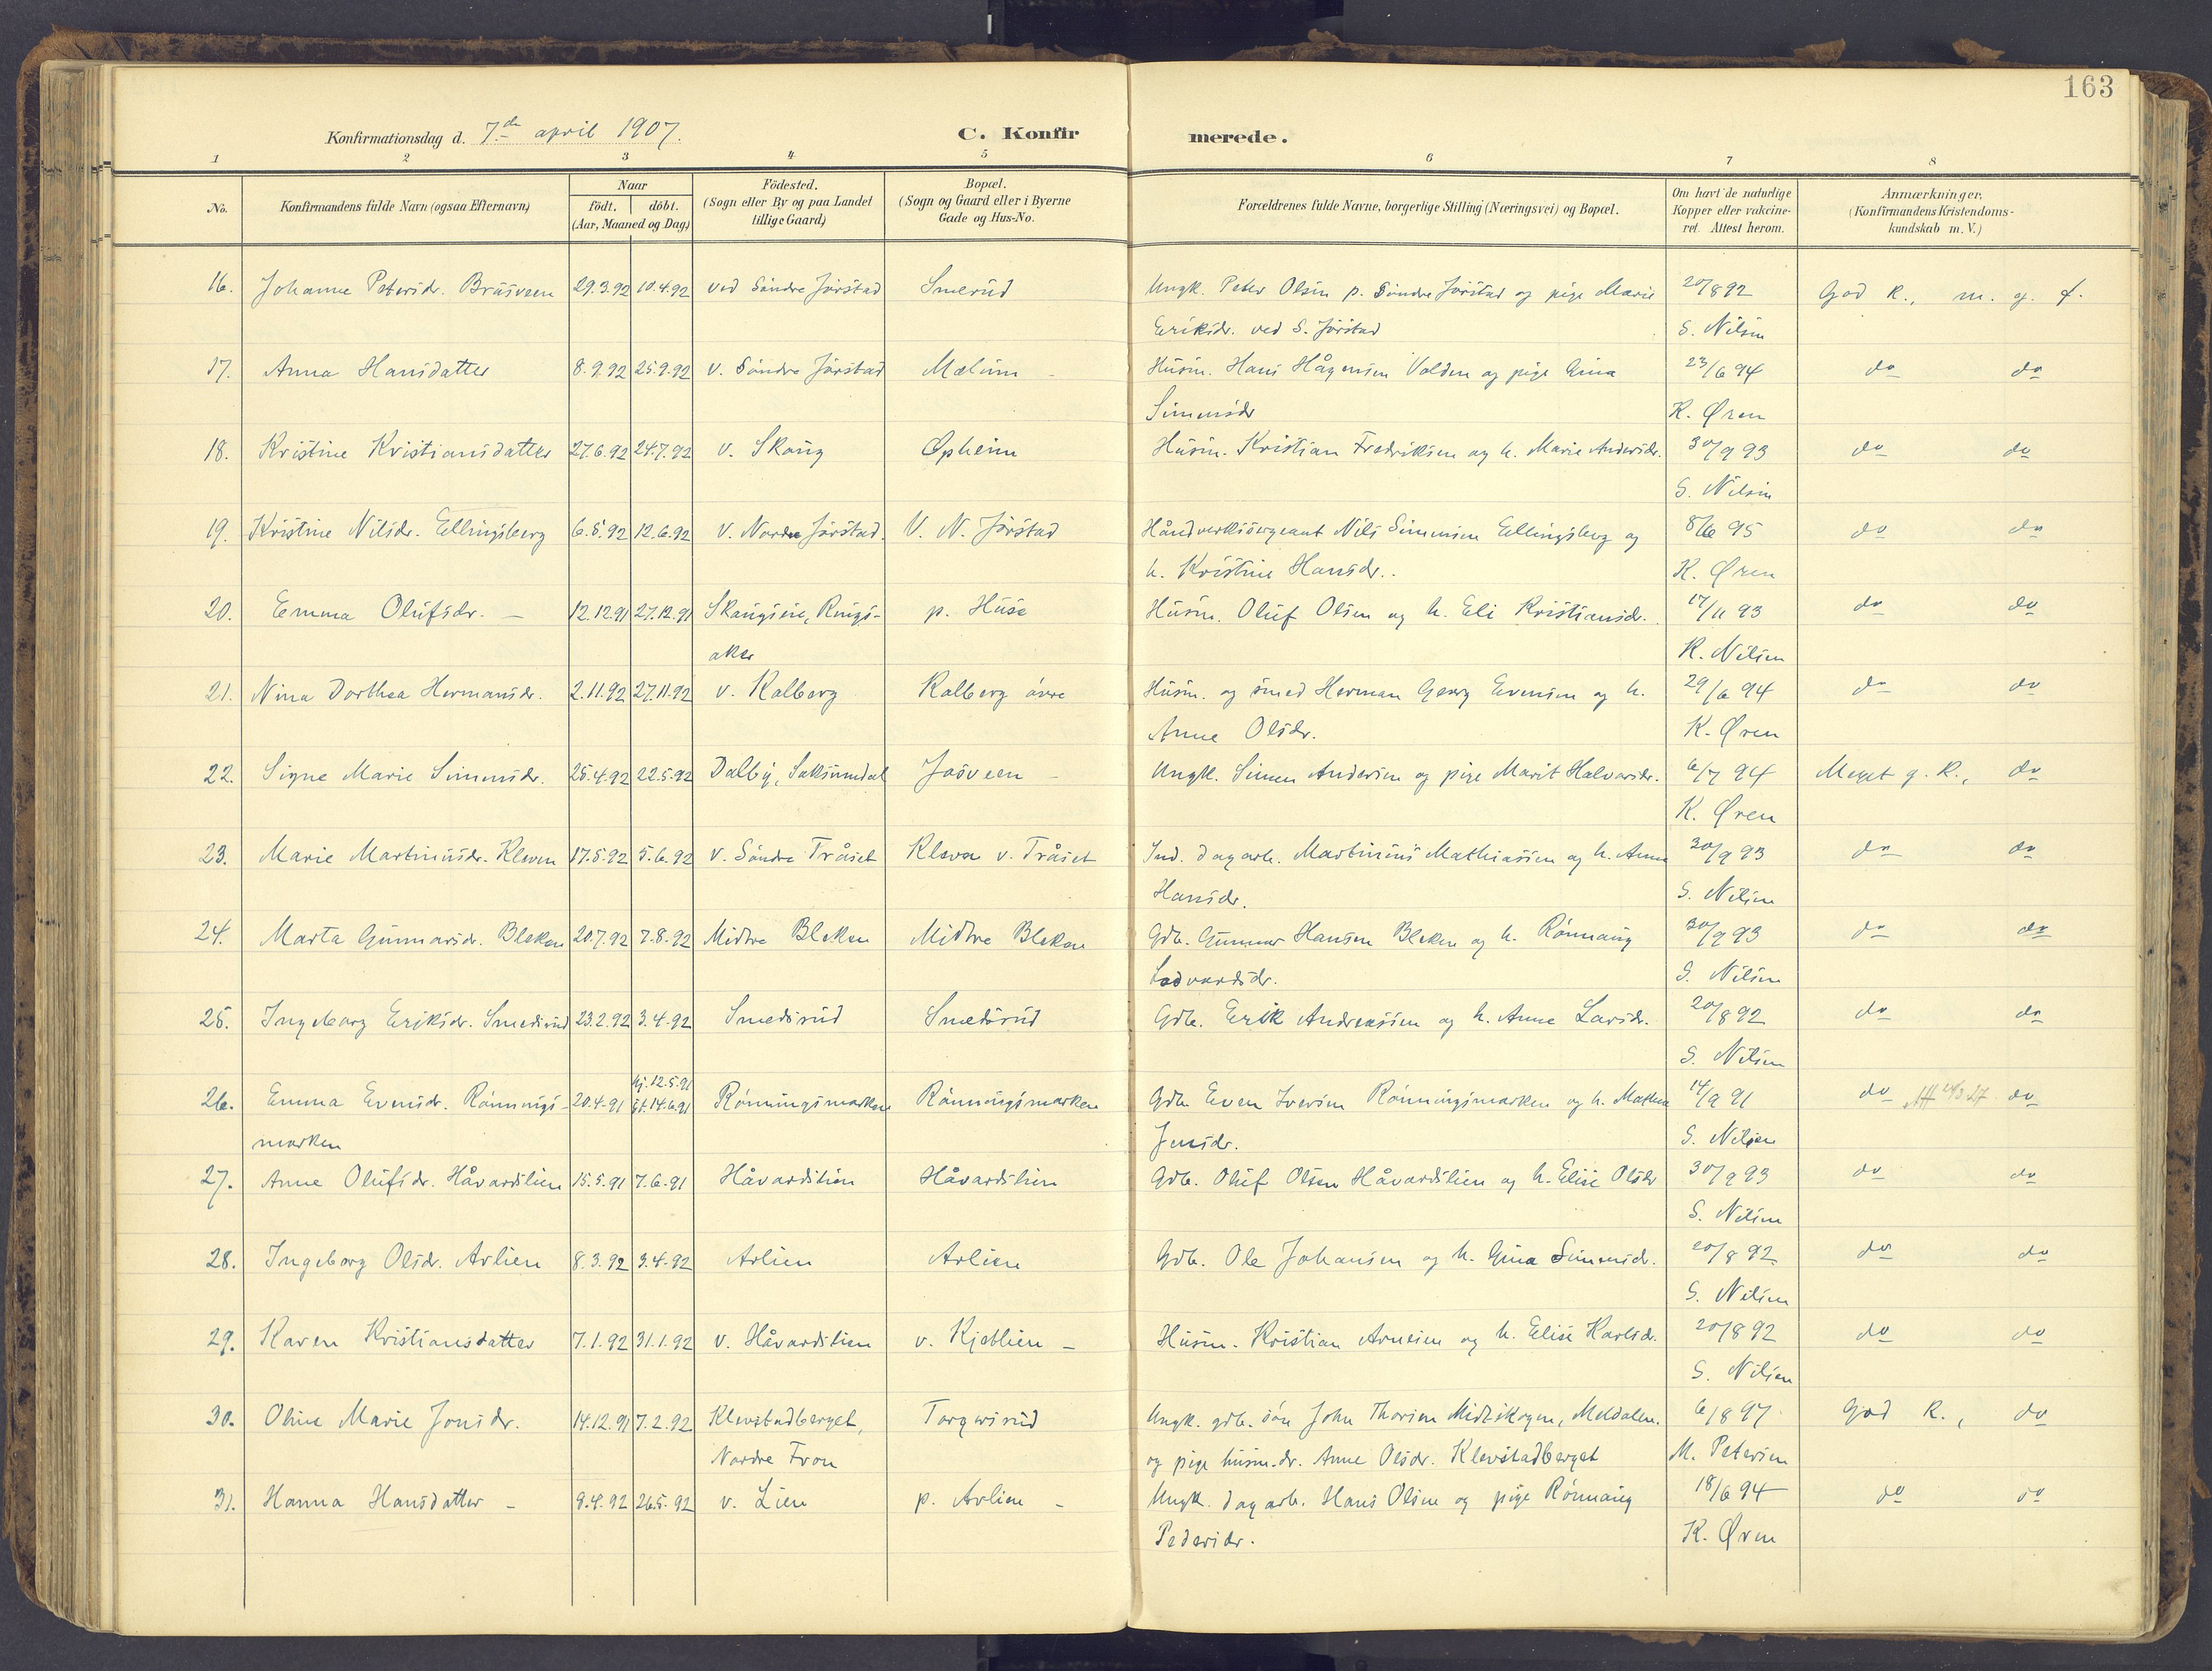 163
Konfirmationsdag d. 7de april 1907.
C. Konfirmerede.
1 2 3 4 5 6 7 8
No. Konfirmandens fulde Navn (ogsaa Efternavn) Naar födt. döbt. (Aar, Maaned og Dag) Födested. (Sogn eller By og paa Landet tillige Gaard) Bopæl. (Sogn og Gaard eller i Byerne Gade og Hus-No. Forældrenes fulde Navne, borgerlige Stilling (Næringsvei) og Bopæl. Om havt de naturlige Kopper eller vakcineret. Attest herom. Anmærkninger. (Konfirmandens Kristendomskundskab m. V.)
16. Johanne Petersdr. Bräsveen 29.3.92 10.4.92 ved Söndre Jörstad Smerud Ungk. Peter Olsen p. Söndre Jörstad og pige Marie 20/8 92 God K., m. g. f.
Eriksdr. ved S. Jörstad S. Nilsen
17. Anna Hansdatter 8.9.92 25.9.92 v. Söndre Jörstad Mælum - Husm. Hans Hågensen Volden og pige Gina 23/6 94 do do
Simensdr K. Øren
18. Kristine Kristiansdatter 27.6.92 24.7.92 v. Skoug Opheim Husm. Kristian Fredriksen og h. Marie Andersdr. 30/9 93 do do
S. Nilsen
19. Kristine Nilsdr. Ellingsberg 6.5.92 12.6.92 v. Nordre Jörstad. V. N. Jörstad Håndverkssergeant Nils Simensen Ellingsberg og 8/6 95 do do
h. Kristine Hansdr.. K. Øren
20. Emma Olufsdr. - 12.12.91 27.12.91 Skougseie, Rings- p. Huse Husm. Oluf Olsen og h. Eli Kristiansdr. 17/11 93 do do
aker K. Nilsen
21. Nina Dorthea Hermansdr. 2.11.92 27.11.92 v. Kalberg Kalberg övre Husm. og smed Herman Georg Evensen og h. 29/6 94 do do
Anne Olsdr. K. Øren
22. Signe Marie Simensdr. 25.4.92 22.5.92 Dalby, Saksumdal Josveen - Ungk. Simen Andersen og pige Marit Halvorsdr. 6/7 94 Meget g. K., do
K. Øren
23. Marie Martinusdr. Kleven 17.5.92 5.6.92 v. Söndre Tråset Kleva v. Tråset Ind. dagarb. Martinius Mathiassen og h. Anne 30/9 93 do do
Hansdr. S. Nilsen
24. Marta Gunnarsdr. Bleken 20.7.92 7.8.92 Midtre Bleken Midtre Bleken Gdb. Gunnar Hansen Bleken og h. Rönnaug 30/9 93 do do
Lodvardsdr. S. Nilsen
25. Ingeborg Eriksdr. Smedsrud 23.2.92 3.4.92 Smedsrud Smedsrud Gdb. Erik Andreassen og h. Anne Larsdr. 20/8 92 do do
S. Nilsen
hj. 12.5.91
26. Emma Evensdr. Rönnings- 20.4.91 st. 14.6.91 Rönningsmarken Rönningsmarken Gdb Even Iversen Rönningsmarken og h. Mathea 14/9 91 do do
marken Jensdr. S. Nilsen
27. Anne Olufsdr. Håvardslien 15.5.91 7.6.91 Håvardslien Håvardslien Gdb. Oluf Olsen Håvardslien og h. Elise Olsdr 30/9 93 do do
S. Nilsen
28. Ingeborg Olsdr. Avlien 8.3.92 3.4.92 Avlien Avlien Gdb. Ole Johansen og h. Gina Simensdr. 20/8 92 do do
S. Nilsen
29. Karen Kristiansdatter 7.1.92 31.1.92 v. Håvardslien v. Kjeblien - Husm. Kristian Arnesen og h. Elise Karlsdr. 20/8 92 do do
S. Nilsen
30. Oline Marie Jonsdr. 14.12.91 7.2.92 Klevstadberget, Torgersrud Ungk. gdb. sön John Thorsen Midtskogen, Meldalen. 6/8 97 God K., do
Nordre Fron og pige husm.dr. Anne Olsdr. Klevstadberget M. Petersen
31. Hanna Hansdatter - 9.4.92 26.5.92 v. Lien p. Avlien - Ungk. dagarb. Hans Olsen og pige Rönnaug 18/6 94 do do
Pedersdr. K. Øren